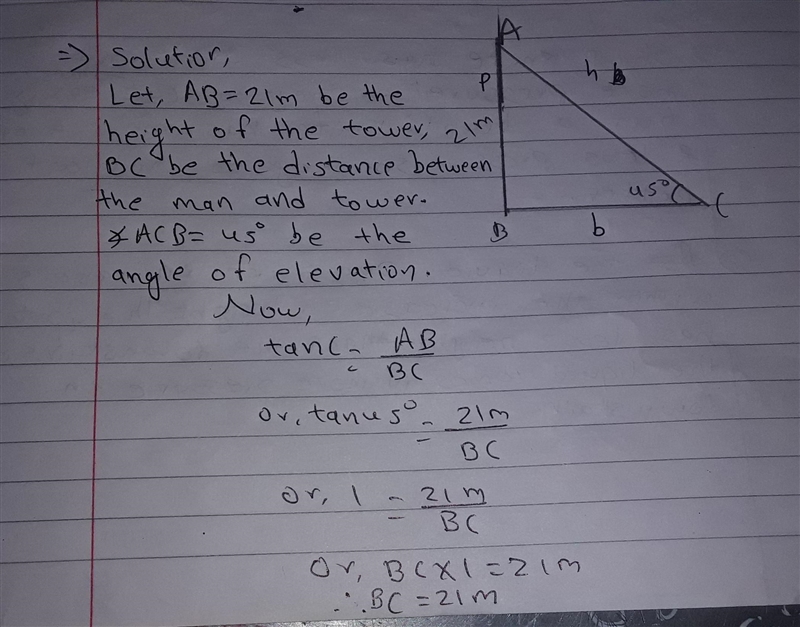 ⇒ Solution,
Let, AB = 21m be the
height of the tower,
BC be the distance between
the man and tower.
∡ACB = 45° be the
angle of elevation.
Now,
tanC = AB/BC
Or, tan45° = 21m/BC
or, 1 = 21m/BC
Or, BC×1 = 21m
∴ BC = 21m
A
P
h
21m
45°
C
B
b